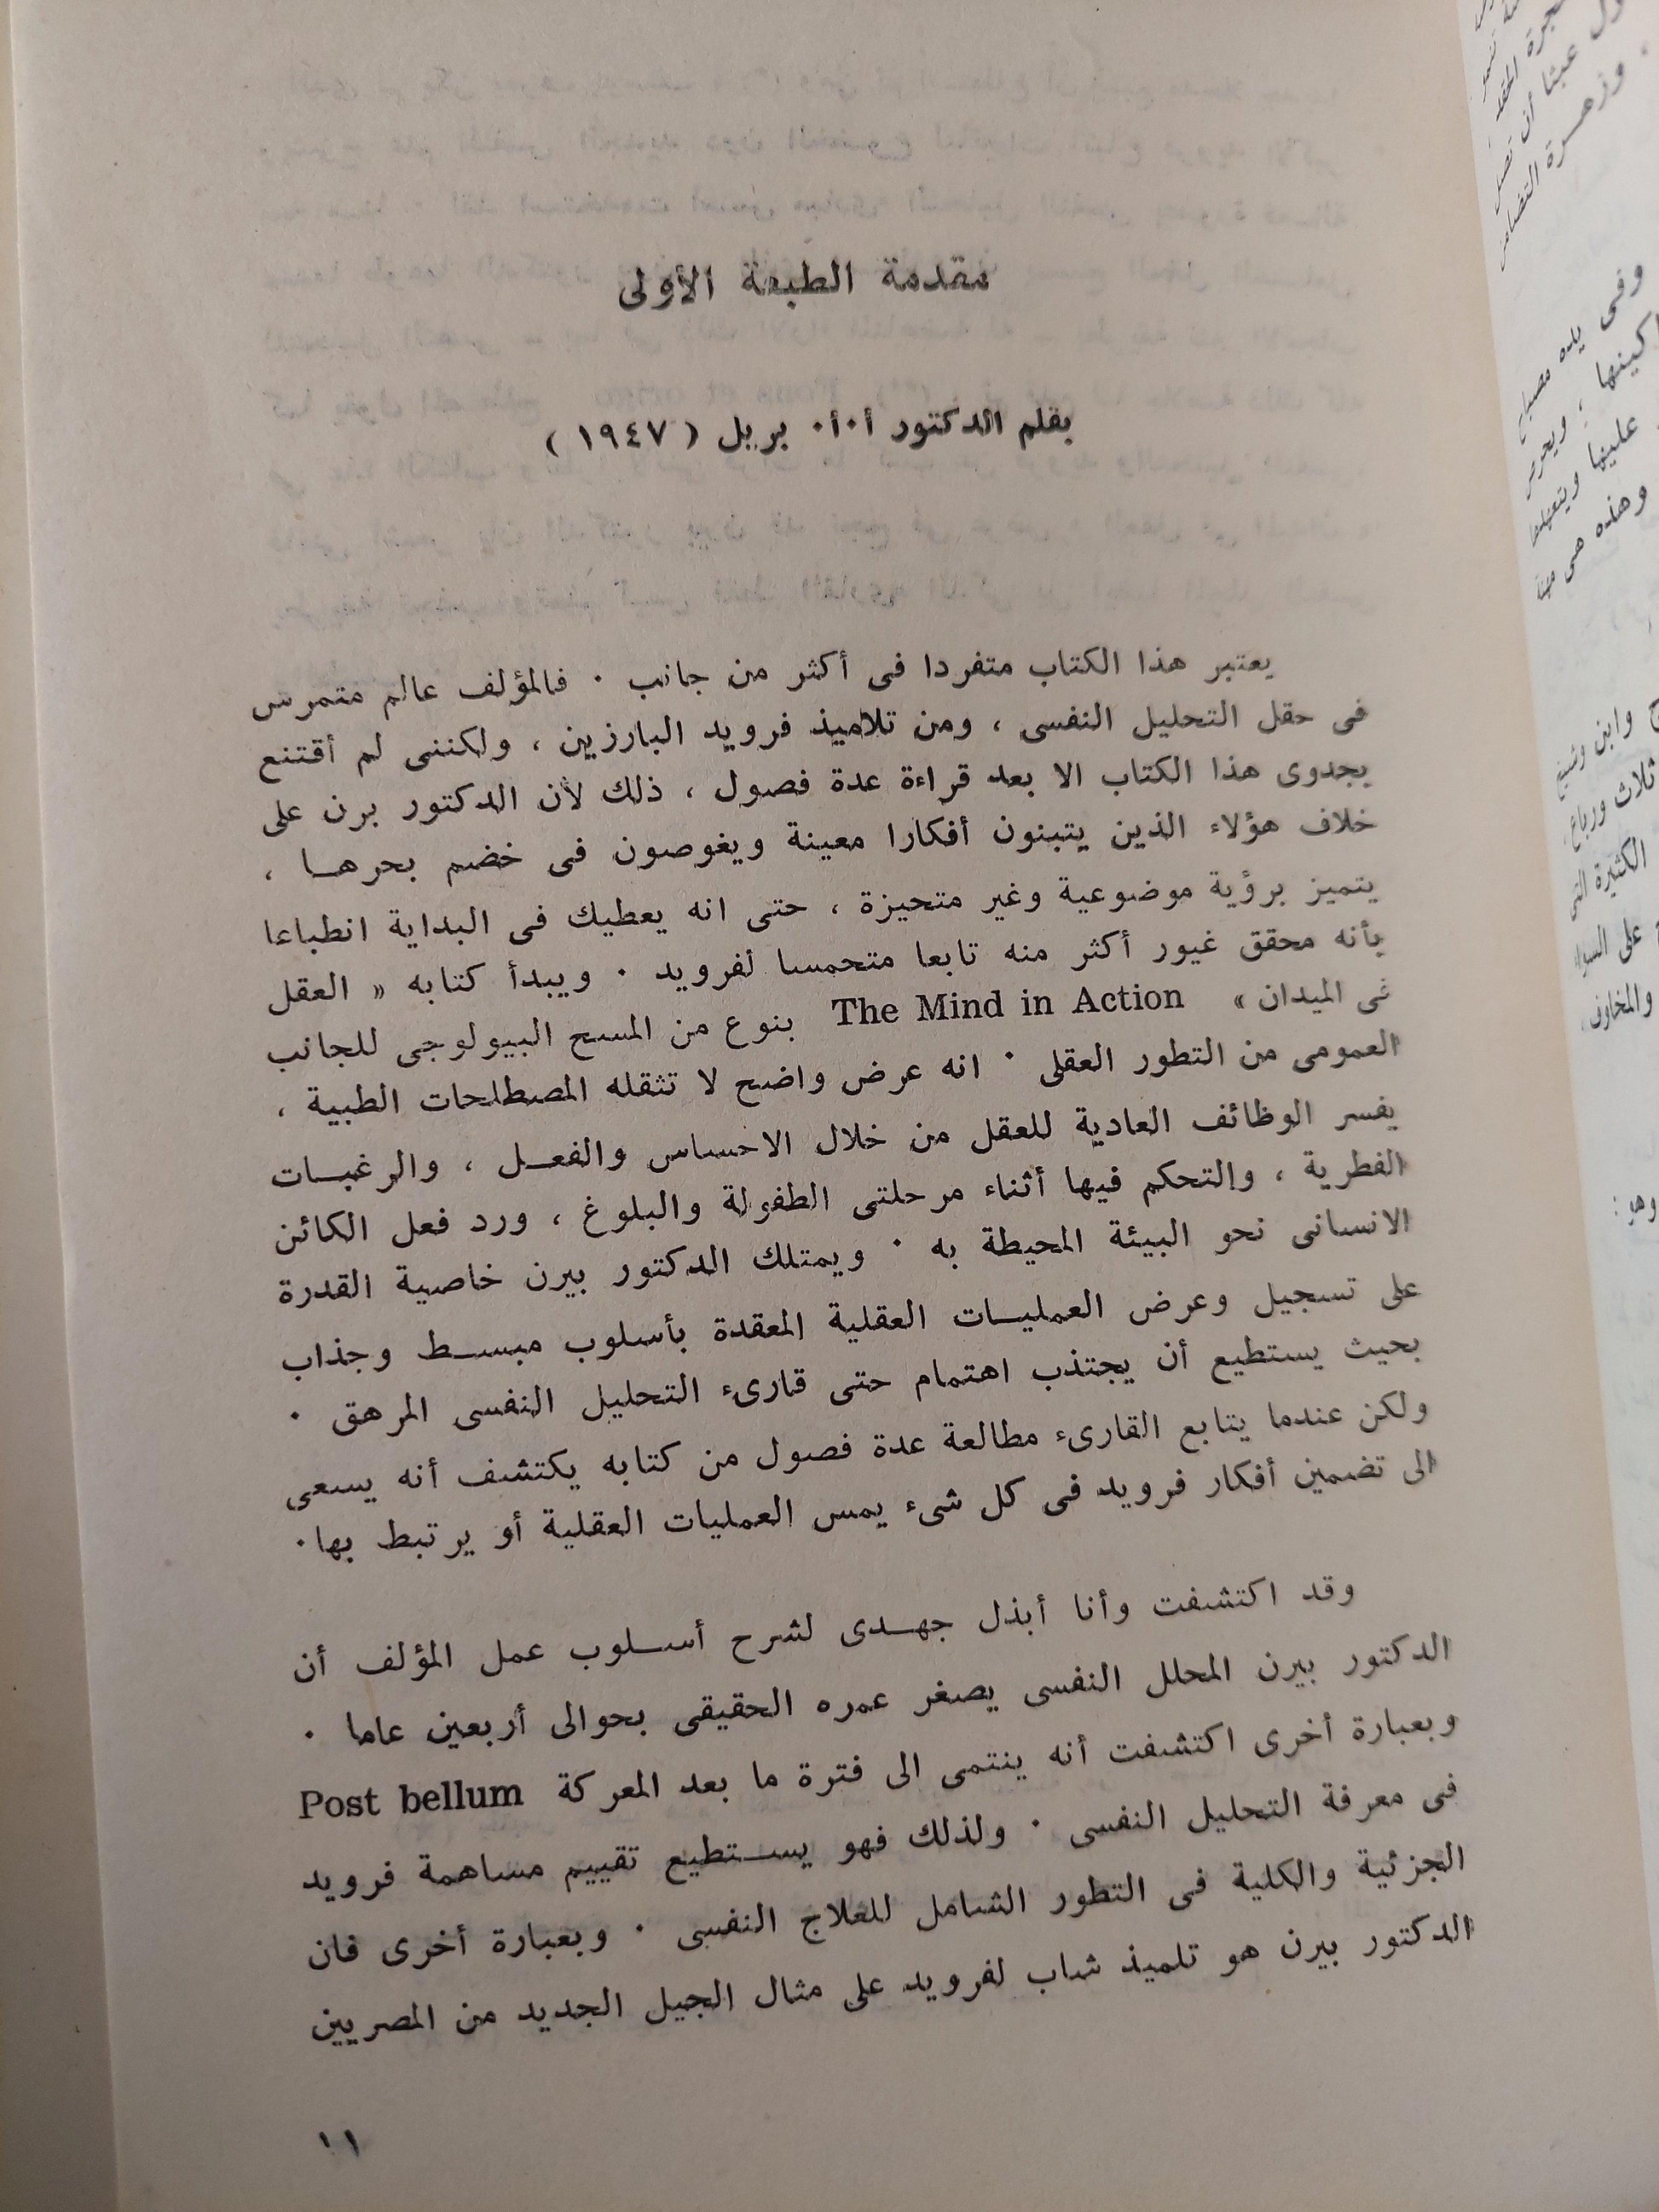 مقدمة الطبعة الأولى
بقلم الدكتور أ٠أ٠ بريل ( ١٩٤٧ )
يعتبر هذا الكتاب متفردا فى أكثر من جانب ٠ فالمؤلف عالم متمرس
فى حقل التحليل النفسى ، ومن تلاميذ فرويد البارزين ، ولكننى لم أقتنع
بجدوى هذا الكتاب الا بعد قراءة عدة فصول ، ذلك لأن الدكتور برن على
خلاف هؤلاء الذين يتبنون أفكارا معينة ويغوصون فى خضم بحرهــا ،
يتميز برؤية موضوعية وغير متحيزة ، حتى انه يعطيك فى البداية انطباعا
بأنه محقق غيور أكثر منه تابعا متحمسا لفرويد ٠ ويبدأ كتابه « العقل
فى الميدان » The Mind in Action بنوع من المسح البيولوجى للجانب
العمومى من التطور العقلى ٠ انه عرض واضح لا تثقله المصطلحات الطبية ،
يفسر الوظائف العادية للعقل من خلال الاحساس والفعــل ، والرغبــات
الفطرية ، والتحكم فيها أثناء مرحلتى الطفولة والبلوغ ، ورد فعل الكائن
الانسانى نحو البيئة المحيطة به ٠ ويمتلك الدكتور بيرن خاصية القدرة
على تسجيل وعرض العمليــات العقلية المعقدة بأسلوب مبســط وجذاب
بحيث يستطيع أن يجتذب اهتمام حتى قارىء التحليل النفسى المرهق ٠
ولكن عندما يتابع القارىء مطالعة عدة فصول من كتابه يكتشف أنه يسعى
الى تضمين أفكار فرويد فى كل شىء يمس العمليات العقلية أو يرتبط بها٠
وقد اكتشفت وأنا أبذل جهــدى لشرح أســلوب عمل المؤلف أن
الدكتور بيرن المحلل النفسى يصغر عمره الحقيقى بحوالى أربعين عاما ٠
وبعبارة أخرى اكتشفت أنه ينتمى الى فترة ما بعد المعركة Post bellum
فى معرفة التحليل النفسى ٠ ولذلك فهو يســتطيع تقييم مساهمة فرويد
الجزئية والكلية فى التطور الشامل للعلاج النفسى ٠ وبعبارة أخرى فان
الدكتور بيرن هو تلميذ شاب لفرويد على مثال الجيل الجديد من المصريين
١١
وزهــرة التضامن
وفى يده مصباح
عليها ويتعهدها
وهذه هى
ثلاث ورباع
الكثيرة التى
على السواء
والمخاوف
وهو :